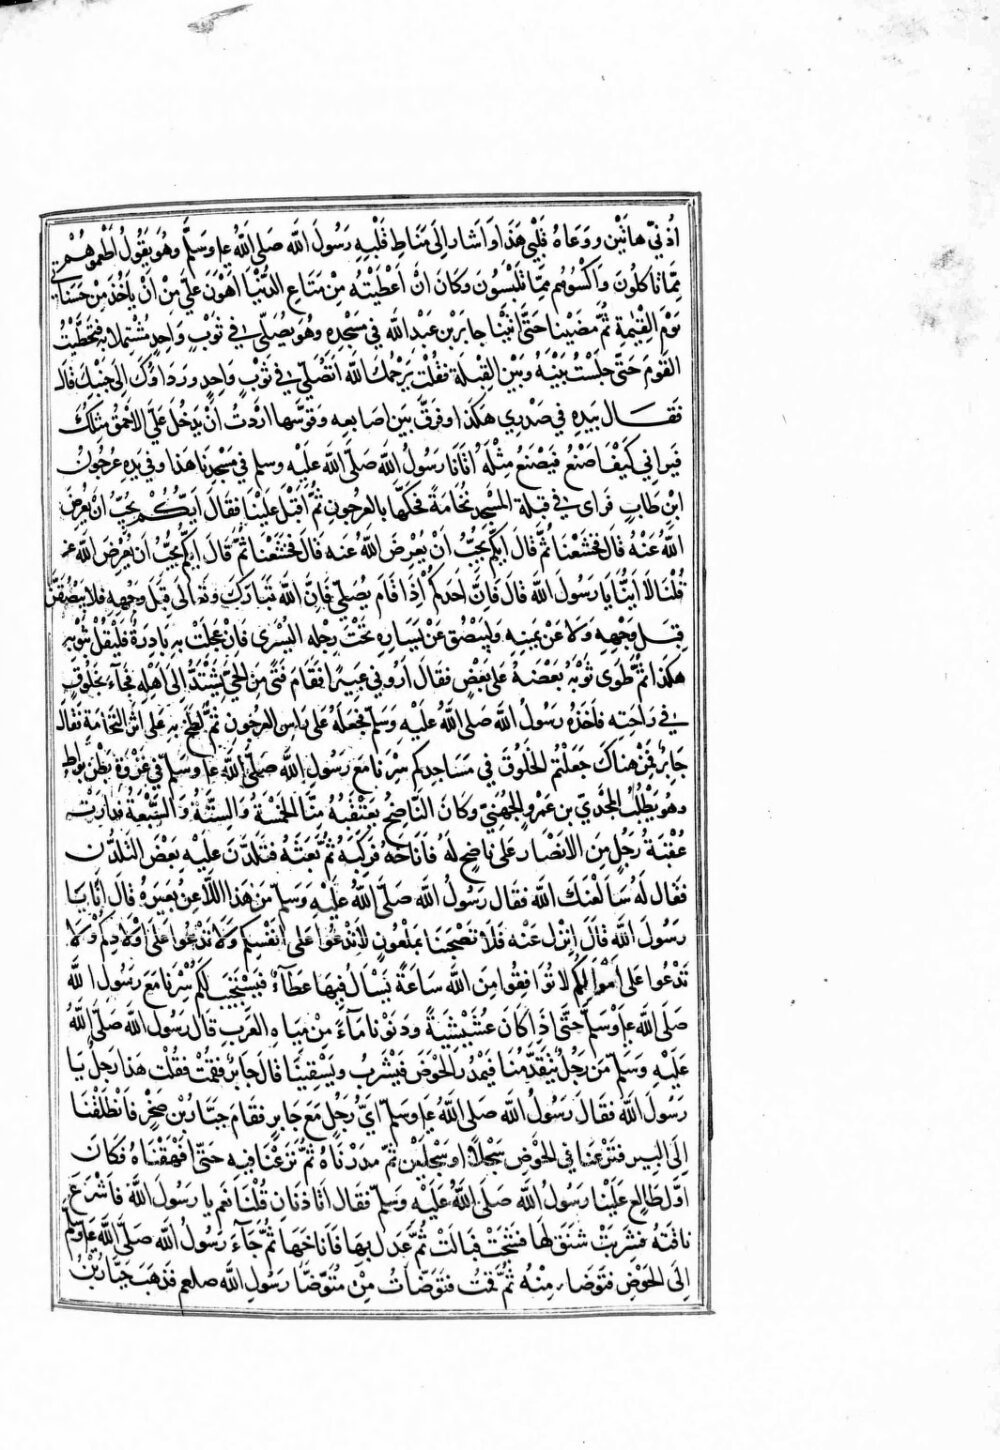 اُذُنَيَّ هاتَين ووَعَاهُ قَلبي هَذا وَاَشارَ اِلَى مَنَاطِ قَلْبِهِ رَسُولَ اللَّه صَلى اللَّهُ ع‍ا وَسَلَّم وهُوَ يَقُولُ اَطْعِموُهُمْ
مِمّا تَاكلُونَ وَاكْسُوهُم مِمّا تَلْبَسُونَ وَكانَ اَنْ اَعْطَيْتُهُ مِنْ مَتَاعِ الدُّنيَا اَهْوَنَ عَلَيَّ مِنْ اَنْ يَاخُذَ مِن حَسَناتي
يَوْمَ القِيٰمَةِ ثُمَّ مَضَيْنا حَتّى اَتَيْنَا جابرَ بْنَ عَبْد اللَّه في مَسْجِدِه وهُوَ يُصَلّي في ثَوْبٍ وَاحِدٍ مُشْتَمِلا بهِ فتخَطَّيْتُ
القَومَ حَتّى جَلسْتُ بَيْنَهُ وبَيْن القِبلَة فقُلتُ يَرْحَمُكَ اللَّه اَتُصَلّي في ثَوْبٍ وَاحِدٍ ورِدَاؤُكَ اِلَى جَنْبِكَ قالَ
فَقَالَ بيَدِهِ في صَدْرِي هَكَذا وفَرَّقَ بين اَصابعِهِ وَقوَّسَها اَرَدْتُ اَنْ يَدْخُلَ عَلَيَّ الاَحمَقُ مِثلُكَ
فَيَرانِي كَيْفَ اَصْنَعُ فيَصْنَعُ مِثْلَهُ اَتَانَا رَسُولُ اللَّه صَلّى اللَّهُ عَلَيْهِ وسلم في مَسْجِدِنا هَذا وفي يَدِهِ عُرجُونُ
ابْنِ طَابٍ فرَاى في قِبلَةِ المَسْجِدِ نُخَامَةً فَحَكَّهَا بالعُرجونِ ثُمَّ اَقبَلَ عَلَيْنَا فَقَالَ اَيُّكُمْ يحِبُّ اَن يُعْرِضَ
اللَّهُ عَنهُ قالَ فخَشَعْنا ثُمَّ قالَ اَيُّكم يحِبُّ اَنْ يُعْرِضَ اللَّهُ عَنه قالَ فخَشَعْنَا ثُمَّ قالَ اَيُّكم يحِبُّ اَن يُعْرِضَ اللَّه عنه
قُلْنَا لاَ اَيُّنَا يَا رَسُولَ اللَّه قالَ فَاِنَّ اَحَدَكُمْ اِذا قامَ يُصَلّي فَاِنَّ اللَّه تَبَارَكَ وَتَعَالَى قِبَلَ وَجْهِهِ فَلاَ يَبْصُقَنَّ
قِبَلَ وَجْهِهِ وَلاَ عَنْ يَمِينِهِ وَليَبْصُق عَنْ يَسَارِهِ تَحْتَ رِجْلهِ اليُسْرَى فَاِنْ عَجلَتْ بهِ بادِرَةٌ فَليَقُلْ بثَوْبهِ
هكَذا ثُمَّ طَوَى ثَوْبَهُ بَعْضَهُ عَلى بَعْضٍ فقالَ اَرُوني عَبِيرًا فقَامَ فَتًى مِنَ الحَيِّ يَشْتَدُّ اِلَى اَهْلِهِ فَجَآءَ بخَلُوقٍ
في رَاحَتِهِ فاَخَذَهُ رَسُولُ اللَّه صَلى اللَّهُ عَلَيْهِ وسَلَّم فجَعَلَهُ عَلى رَاسِ العُرجُونِ ثُمَّ لَطَخَ بِهِ عَلى اَثرِ النُّخَامَةِ فقَالَ
جابرٌ فمِنْ هناكَ جَعَلْتُم الخَلُوقَ في مَسَاجِدِكُم سِرْنَا مَعَ رَسُولِ اللَّه صَلّى اللَّهُ ع‍ا وسَلّم في غَزْوَةِ بَطْنِ بُوَاطٍ
وهُوَ يَطْلُبُ المَجْدِيَّ بنَ عَمْرٍو الجُهَنِيَّ وكَانَ النَّاضِحُ يَعْتَقِبُهُ مِنَّا الخَمْسَةُ وَالسِّتَّةُ وَالسَّبْعَةُ فدَارَتْ
عُقْبَةُ رَجُلٍ مِنَ الاَنْصَار عَلى نَاضِحٍ لَهُ فَاَنَاخَهُ فرَكِبَهُ ثُمَّ بَعَثَهُ فتَلَدَّنَ عَلَيْهِ بَعْضَ التّلَدُّن
فَقالَ لَهُ شَا لَعَنَكَ اللَّه فقَالَ رَسُولُ اللَّه صَلّى اللَّهُ عَلَيْهِ وَسَلّم مَنْ هَذا اللاَّعِنُ بَعِيرَهُ قالَ اَنَا يَا
رَسُولَ اللَّه قَالَ اِنْزل عَنْه فَلاَ تَصْحَبْنَا بمَلْعُونٍ لاَ تَدْعُوا عَلى اَنْفُسِكُم وَلاَ تَدْعُوا عَلى اَوْلادِكُمْ وَلاَ
تَدْعُوا عَلى اَمْوَالِكُم لاَ تُوَافِقُوا مِنَ اللَّه سَاعَةً يُسْاَلُ فيهَا عَطَآءٌ فيَسْتَجيبَ لَكُمْ سِرْنَا مَعَ رَسُولِ اللَّه
صَلى اللَّه ع‍ا وَسَلّم حَتَّى اِذا كانَ عُشَيْشِيَةً وَدَنَوْنا مَآءً مِنْ مِيَاهِ العَرَبِ قالَ رَسُولُ اللَّه صَلّى اللَّهُ
عَلَيْهِ وَسَلّم مَنْ رَجُلٌ يَتَقَدَّمُنَا فَيَمْدُرُ الحَوْضَ فَيَشْرَبُ ويَسْقِينَا قالَ جَابرٌ فقُمْتُ فقُلْتُ هَذا رَجُلٌ يَا
رَسُولَ اللَّه فقَالَ رَسُولُ اللَّه صَلّى اللَّهُ ع‍ا وَسَلّم اَيُّ رَجُلٍ مَعَ جَابرٍ فقَامَ جَبّارُ بْن صَخْرٍ فَانْطَلَقْنَا
اِلَى البِيرِ فنَزَعْنَا في الحَوْضِ سَجْلاً اَوْ سَجْلَيْنِ ثُمّ مدَدْنَاهُ ثُمَّ نَزَعْنَا فيهِ حَتّى اَفْهَقْنَاهُ فكَانَ
اَوَّلَ طَالِعٍ عَلَيْنا رَسُولُ اللَّه صَلّى اللَّهُ عَلَيْهِ وَسَلّم فَقالَ اَتَاذَنَانِ قُلْنَا نَعَم يا رَسُولَ اللَّه فاَشْرَعَ
نَاقَتَهُ فشَرِبَتْ شَنَقَ لَها فشَجَتْ فبَالَتْ ثُمَّ عَدَلَ بِهَا فاَنَاخَهَا ثُمَّ جَآءَ رَسُولُ اللَّه صَلّى اللَّهُ ع‍ا وَسَلّم
اِلَى الحَوْضِ فتَوَضّا مِنْهُ ثُمَّ قُمْتُ فتَوَضّاتُ مِنْ مُتَوَضَّا رَسُولِ اللَّه صلعم فَذَهَبَ جَبَّارُ بْنُ